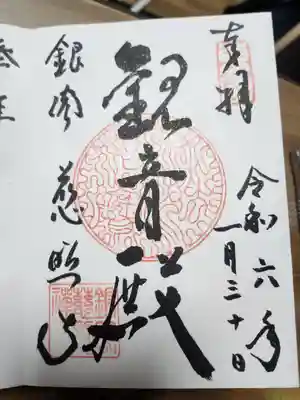 奉拝
令和六年
一月三十日
観音殿
銀閣 慈照寺